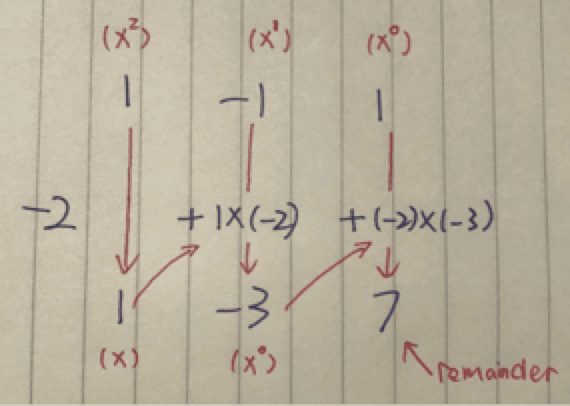 (x²) (x¹) (x⁰)
1 -1 1
-2 +1×(-2) +(-2)×(-3)
1 -3 7
(x) (x⁰)
remainder